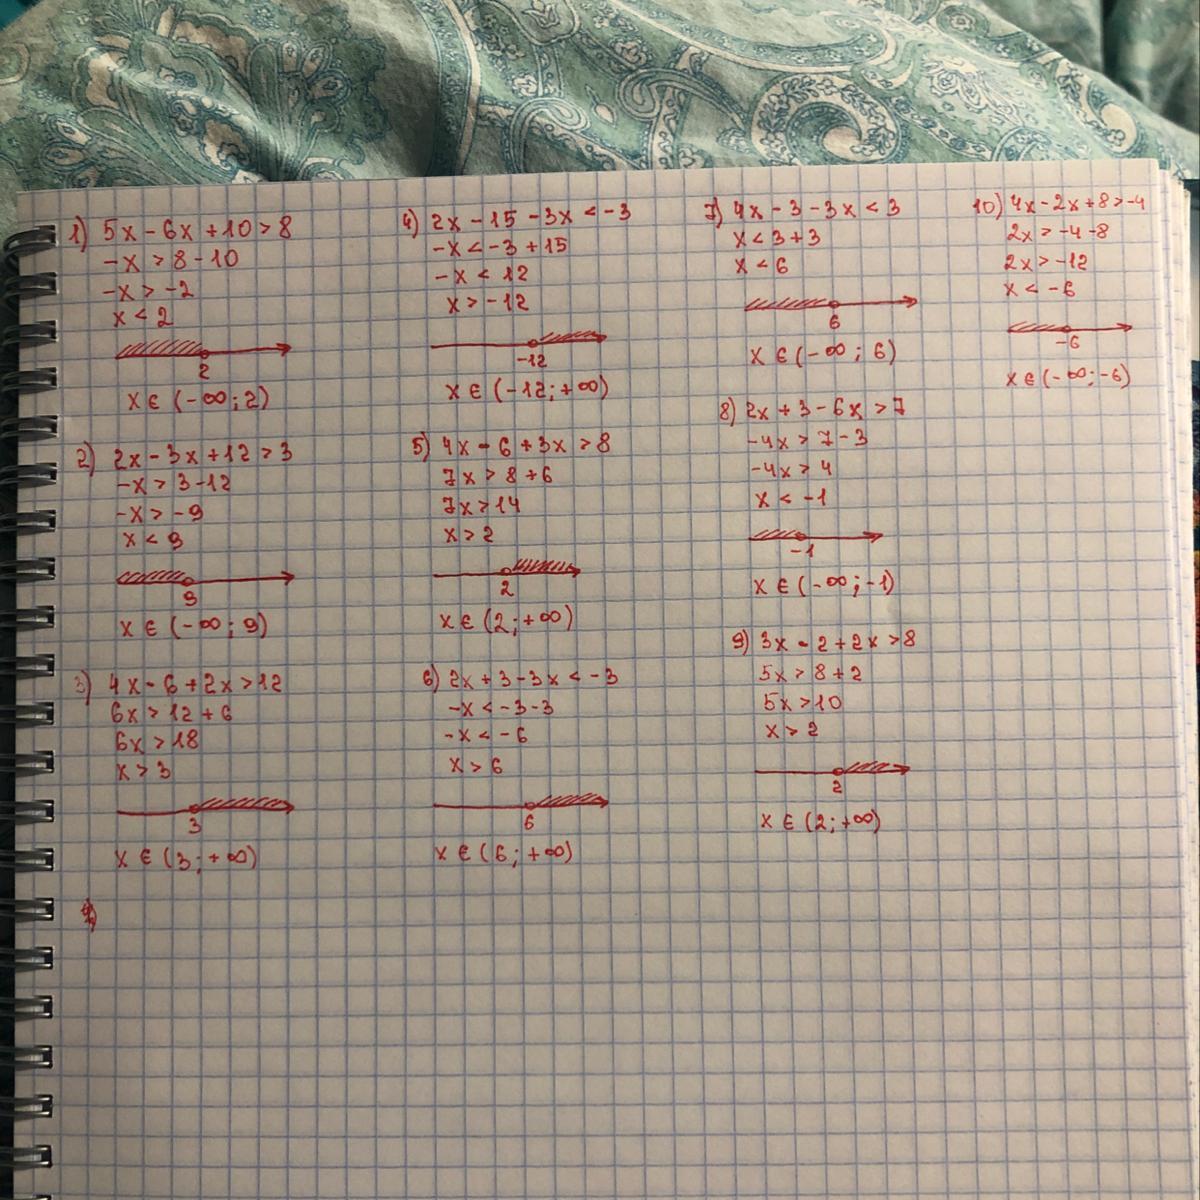 1) 5x - 6x + 10 > 8
-x > 8 - 10
-x > -2
x < 2
2
x ∈ (-∞; 2)
2) 2x - 3x + 12 > 3
-x > 3 - 12
-x > -9
x < 9
9
x ∈ (-∞; 9)
3) 4x - 6 + 2x > 12
6x > 12 + 6
6x > 18
x > 3
3
x ∈ (3; +∞)
4) 2x - 15 - 3x < -3
-x < -3 + 15
-x < 12
x > -12
-12
x ∈ (-12; +∞)
5) 4x - 6 + 3x > 8
7x > 8 + 6
7x > 14
x > 2
2
x ∈ (2; +∞)
6) 2x + 3 - 3x < -3
-x < -3 - 3
-x < -6
x > 6
6
x ∈ (6; +∞)
7) 4x - 3 - 3x < 3
x < 3 + 3
x < 6
6
x ∈ (-∞; 6)
8) 2x + 3 - 6x > 7
-4x > 7 - 3
-4x > 4
x < -1
-1
x ∈ (-∞; -1)
9) 3x - 2 + 2x > 8
5x > 8 + 2
5x > 10
x > 2
2
x ∈ (2; +∞)
10) 4x - 2x + 8 > -4
2x > -4 - 8
2x > -12
x < -6
-6
x ∈ (-∞; -6)